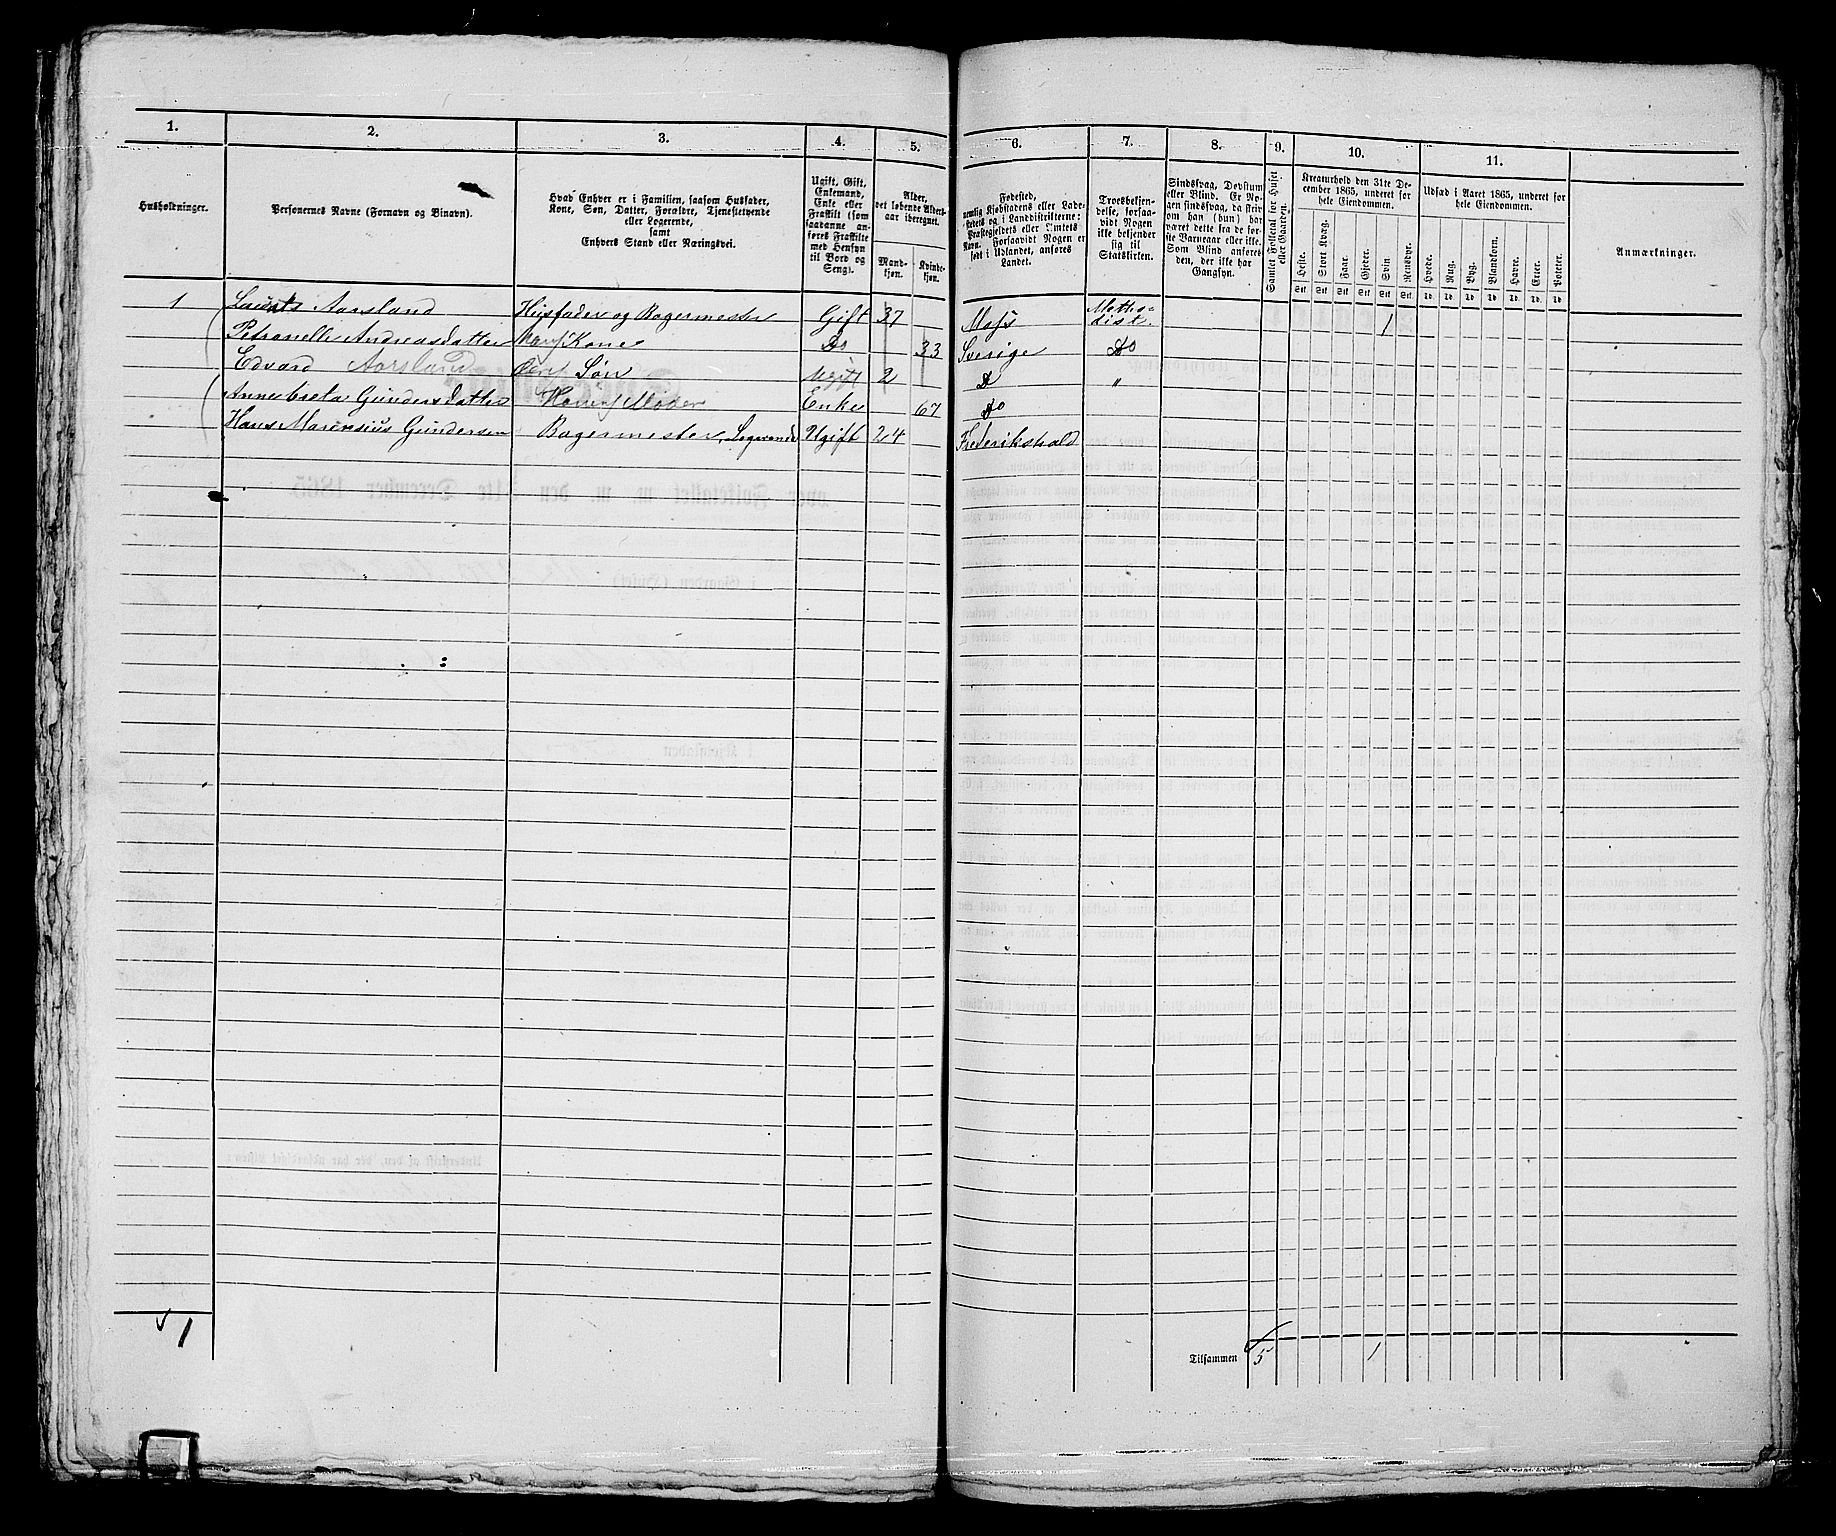 1. 2. 3. 4. 5. 6. 7. 8. 9. 10. 11.
Husholdninger.
Personernes Navne (Fornavn og Binavn).
Hvad Enhver er i Familien, saasom Husfader,
Kone, Søn, Datter, Forældre, Tjenestetyende
eller Logerende,
samt
Enhvers Stand eller Næringsvei.
Ugift, Gift,
Enkemand,
Enke eller
Fraskilt (som
saadanne an-
føres Fraskilte
med Hensyn
til Bord og
Seng).
Alder,
det løbende Alders-
aar iberegnet.
Mand-
kjøn.
Kvinde-
kjøn.
Fødested,
nemlig Kjøbstadens eller Lade-
stedets og i Landdistrikterne:
Præstegjeldets eller Amtets
Navn. Forsaavidt Nogen er
født i Udlandet, anføres
Landet.
Troesbekjen-
delse, forsaa-
vidt Nogen
ikke bekjender
sig til
Statskirken.
Sindssvag, Døvstum
eller Blind. Er No-
gen sindssvag, da skri-
ves om han (hun) har
været dette fra de før-
ste Barneaar eller ikke.
Som Blind anføres
den, der ikke har
Gangsyn.
Samlet Folketal for Huset
eller Gaarden.
Kreaturhold den 31te De-
cember 1865, underet for
hele Eiendommen.
Heste. Stort Kvæg. Faar. Gjeder. Svin Rensdyr.
Stk Stk Stk Stk Stk Stk
Udsæd i Aaret 1865, underet for
hele Eiendommen.
Hvede. Rug. Byg. Blandkorn. Havre. Erter. Poteter.
Td. Td. Td. Td. Td. Td. Td.
Anmærkninger.
1 Aarsland Husfader og Bagermester Gift 37 Moss Metho-
dist. 1
Petronelle Andreasdatter Kone Do 33 Sverige Do
Edvard Aarsland Søn Ugift 2 "
Gundersdatter Moder Enke 67 Do
Hans Gundersen Bagermester, Logerende Ugift 24 Frederikshald
1
Tilsammen 5 1